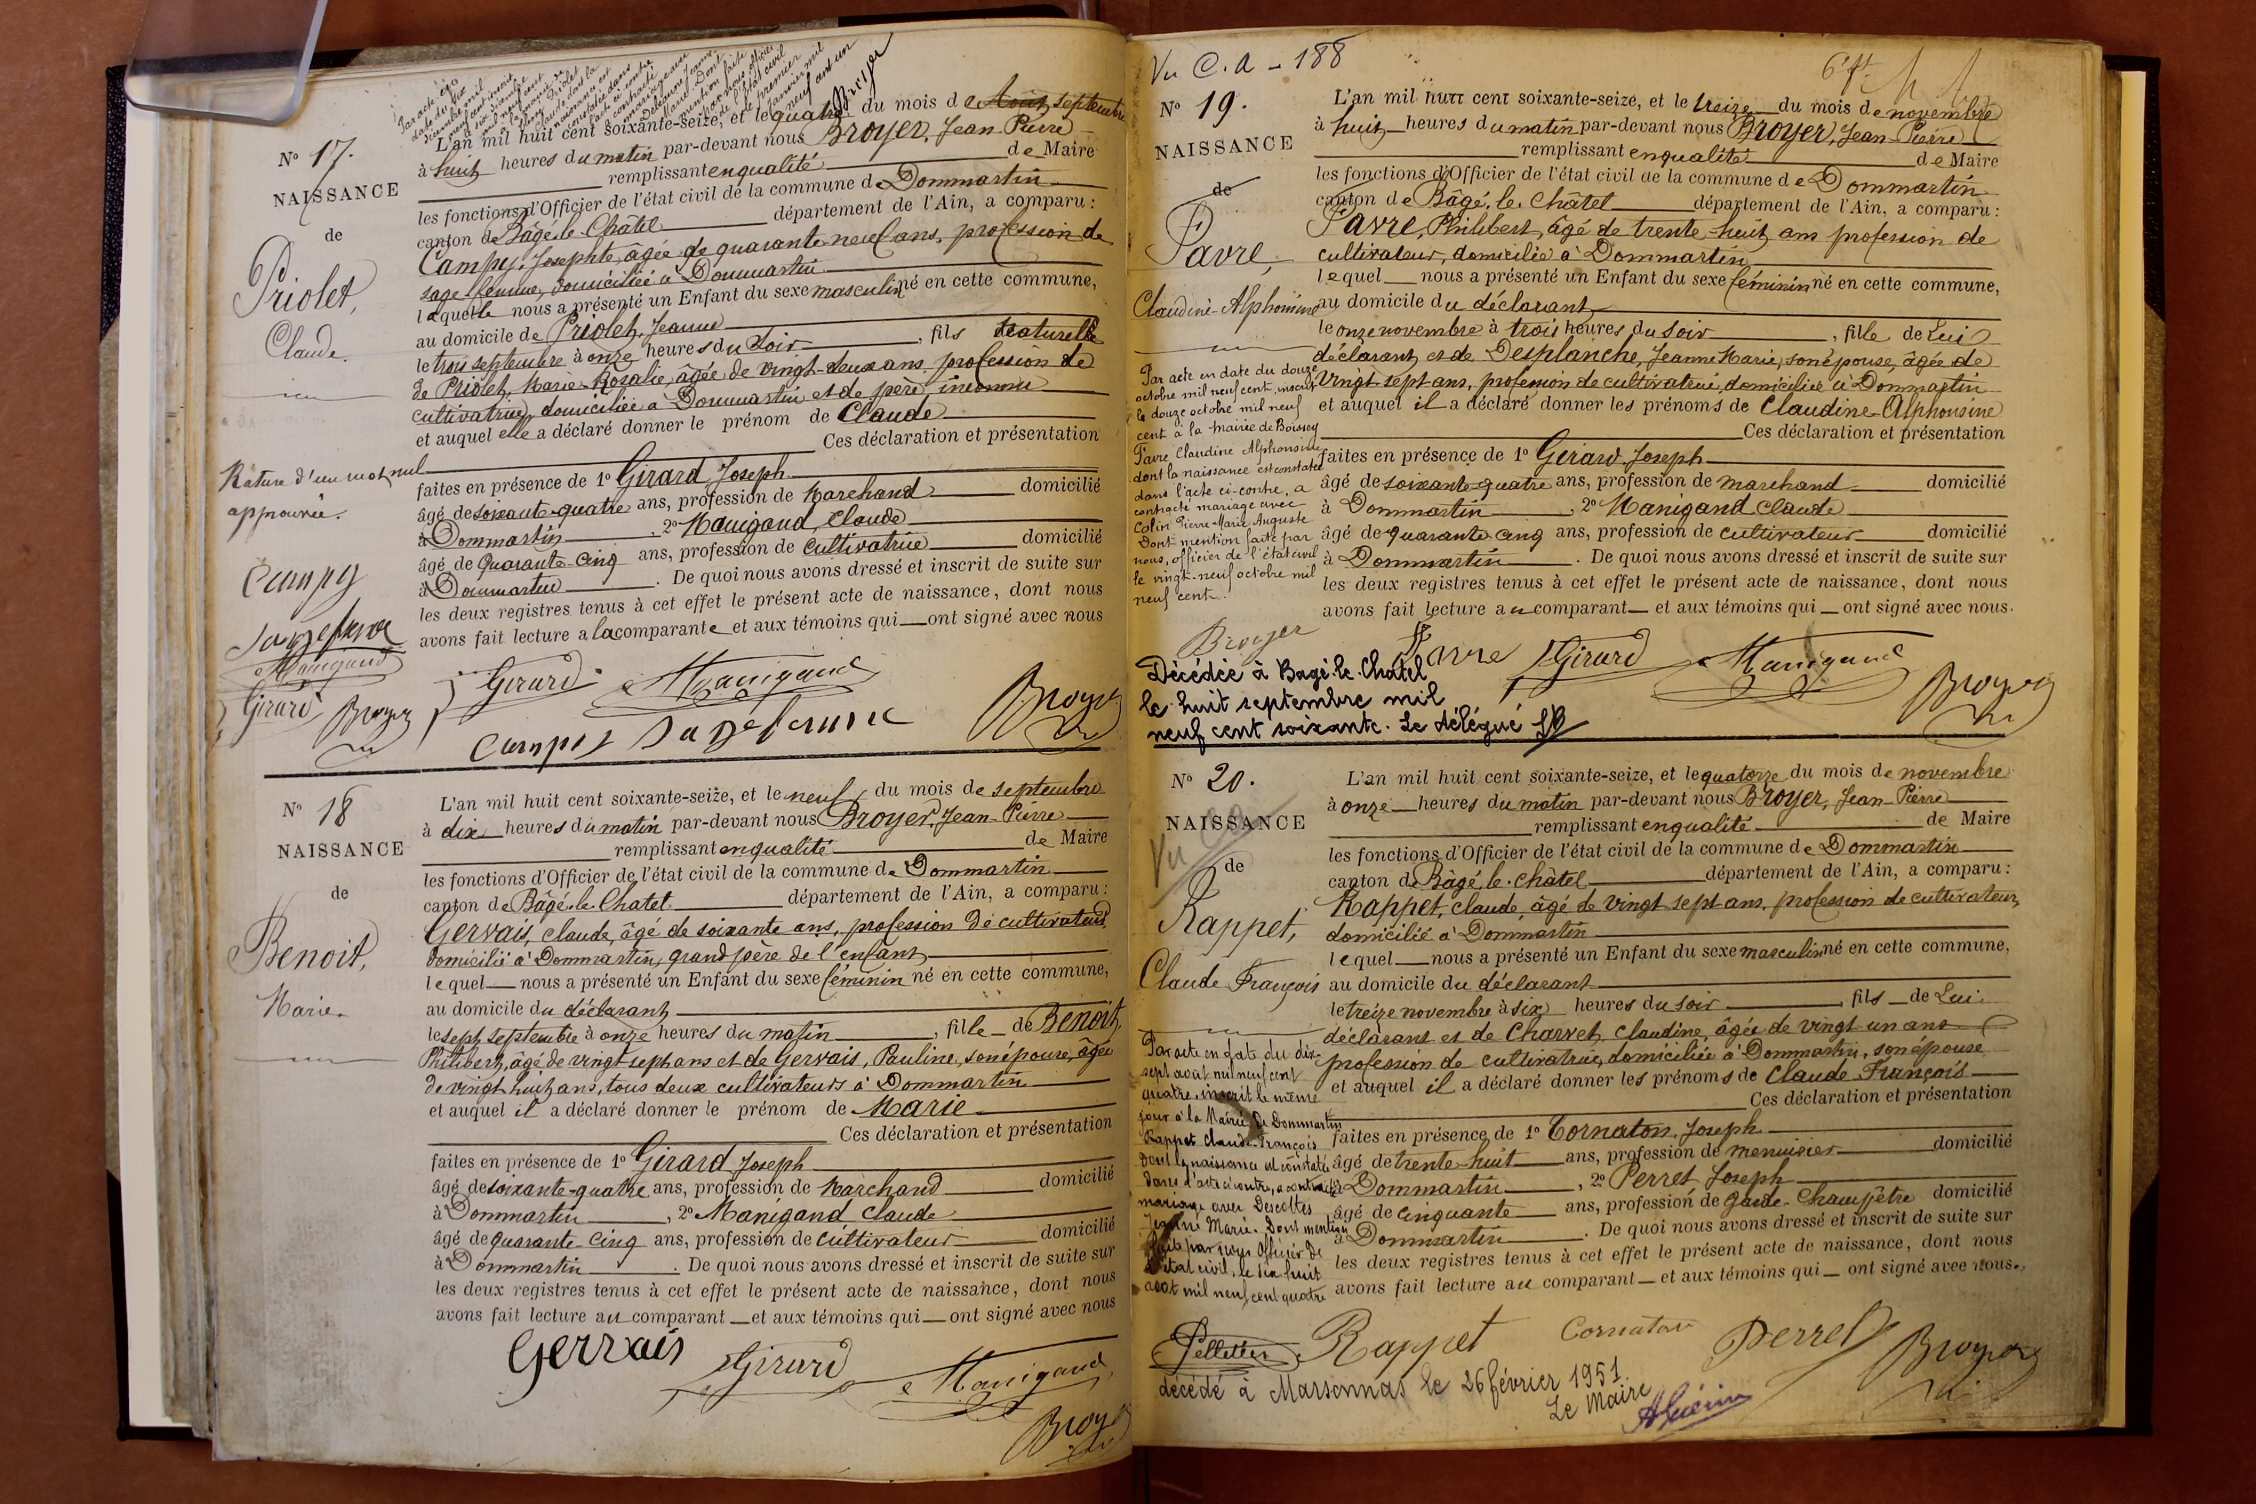 N° 17.
NAISSANCE
de
Priolet,
Claude.
Rature d'un mot nul
approuvée.
Campy
Sagefame
Manigand
Girard Broyer
L'an mil huit cent soixante-seize, et le quatre du mois de Août septembre
à huit heures du matin par-devant nous Broyer, Jean-Pierre
remplissant en qualité de Maire
les fonctions d'Officier de l'état civil de la commune de Dommartin
canton de Bâgé-le-Châtel département de l'Ain, a comparu :
Campy, Josephte, âgée de quarante neuf ans, profession de
sage-femme, domiciliée à Dommartin
laquelle nous a présenté un Enfant du sexe masculin né en cette commune,
au domicile de Priolet, Jeanne
le trois septembre à onze heures du soir, fils naturelle
de Priolet, Marie-Rosalie, âgée de vingt-deux ans profession de
cultivatrice, domiciliée à Dommartin et de père inconnu
et auquel elle a déclaré donner le prénom de Claude
Ces déclaration et présentation
faites en présence de 1° Girard Joseph
âgé de soixante-quatre ans, profession de Marchand domicilié
à Dommartin, 2° Manigand, Claude
âgé de Quarante-cinq ans, profession de cultivatrice domicilié
à Dommartin. De quoi nous avons dressé et inscrit de suite sur
les deux registres tenus à cet effet le présent acte de naissance, dont nous
avons fait lecture a la comparante et aux témoins qui ont signé avec nous
Girard Manigand Broyer
Campy Sagefame
N° 18
NAISSANCE
de
Benoit,
Marie.
L'an mil huit cent soixante-seize, et le neuf du mois de septembre
à dix heures du matin par-devant nous Broyer, Jean-Pierre
remplissant en qualité de Maire
les fonctions d'Officier de l'état civil de la commune de Dommartin
canton de Bâgé-le-Chatel département de l'Ain, a comparu :
Gervais, claude, âgé de soixante ans, profession de cultivateur
domicilié à Dommartin, grand père de l'enfant
lequel nous a présenté un Enfant du sexe féminin né en cette commune,
au domicile du déclarant
le sept septembre à onze heures du matin, fille de Benoit,
Philibert, âgé de vingt sept ans et de Gervais, Pauline, son épouse, âgée
de vingt huit ans, tous deux cultivateurs à Dommartin
et auquel il a déclaré donner le prénom de Marie
Ces déclaration et présentation
faites en présence de 1° Girard Joseph
âgé de soixante-quatre ans, profession de Marchand domicilié
à Dommartin, 2° Manigand Claude
âgé de quarante-cinq ans, profession de cultivateur domicilié
à Dommartin. De quoi nous avons dressé et inscrit de suite sur
les deux registres tenus à cet effet le présent acte de naissance, dont nous
avons fait lecture au comparant et aux témoins qui ont signé avec nous
Gervais Girard Manigand
Broyer
Vu C.A - 188
N° 19.
NAISSANCE
de
Favre,
Claudine-Alphonsine
Par acte en date du douze
octobre mil neuf cent, inscrit
le douze octobre mil neuf
cent à la mairie de Boissey
Favre Claudine Alphonsine
dont la naissance est constatée
dans l'acte ci-contre, a
contracté mariage avec
Colin Pierre-Marie Auguste
Dont mention faite par
nous, officier de l'état civil
le vingt-neuf octobre mil
neuf cent.
Broyer
L'an mil huit cent soixante-seize, et le treize du mois de novembre
à huit heures du matin par-devant nous Broyer, Jean-Pierre
remplissant en qualité de Maire
les fonctions d'Officier de l'état civil de la commune de Dommartin
canton de Bâgé-le-Châtel département de l'Ain, a comparu :
Favre, Philibert, âgé de trente-huit ans profession de
cultivateur, domicilié à Dommartin
lequel nous a présenté un Enfant du sexe féminin né en cette commune,
au domicile du déclarant
le onze novembre à trois heures du soir, fille de Lui
déclarant et de Desplanche, Jeanne Marie, son épouse, âgée de
vingt-sept ans, profession de cultivateur, domiciliée à Dommartin
et auquel il a déclaré donner les prénoms de Claudine-Alphonsine
Ces déclaration et présentation
faites en présence de 1° Girard Joseph
âgé de soixante-quatre ans, profession de marchand domicilié
à Dommartin, 2° Manigand Claude
âgé de quarante-cinq ans, profession de cultivateur domicilié
à Dommartin. De quoi nous avons dressé et inscrit de suite sur
les deux registres tenus à cet effet le présent acte de naissance, dont nous
avons fait lecture au comparant et aux témoins qui ont signé avec nous.
Favre Girard Manigand
Broyer
Décédée à Bagé-le-Chatel
le huit septembre mil
neuf cent soixante. Le délégué
N° 20.
NAISSANCE
Vu
de
Rappet,
Claude François
Par acte en date du dix-
sept août mil neuf cent
quatre, inscrit le même
jour à la Mairie de Dommartin
Rappet Claude-François
Dont la naissance est constatée
dans l'acte ci contre, a contracté
mariage avec Descottes
Jeanne Marie. Dont mention
faite par nous Officier de
l'état civil, le dix huit
août mil neuf cent quatre
Pelletier
L'an mil huit cent soixante-seize, et le quatorze du mois de novembre
à onze heures du matin par-devant nous Broyer, Jean-Pierre
remplissant en qualité de Maire
les fonctions d'Officier de l'état civil de la commune de Dommartin
canton de Bâgé-le-Châtel département de l'Ain, a comparu :
Rappet, claude, âgé de vingt sept ans, profession de cultivateur,
domicilié à Dommartin
lequel nous a présenté un Enfant du sexe masculin né en cette commune,
au domicile du déclarant
le treize novembre à six heures du soir, fils de Lui
déclarant et de Charvet, claudine, âgée de vingt un ans
profession de cultivatrice, domiciliée à Dommartin, son épouse
et auquel il a déclaré donner les prénoms de Claude-François
Ces déclaration et présentation
faites en présence de 1° Cornaton, Joseph
âgé de trente-huit ans, profession de menuisier domicilié
à Dommartin, 2° Perret Joseph
âgé de cinquante ans, profession de garde-champêtre domicilié
à Dommartin. De quoi nous avons dressé et inscrit de suite sur
les deux registres tenus à cet effet le présent acte de naissance, dont nous
avons fait lecture au comparant et aux témoins qui ont signé avec nous.
Rappet Cornaton Perret Broyer
décédé à Marsonnas le 26 février 1951
Le Maire
AGuérin